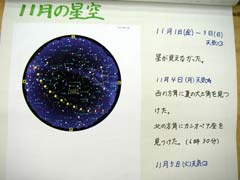 11月の星空
11月1日(金)~3日(日)
天気○
星が見えなかった。
11月4日(月)天気
西の方角に夏の大三角を見
つけた。
北の方角にカシオペア座を
見つけた。(6時30分)
11月5日(火)天気○